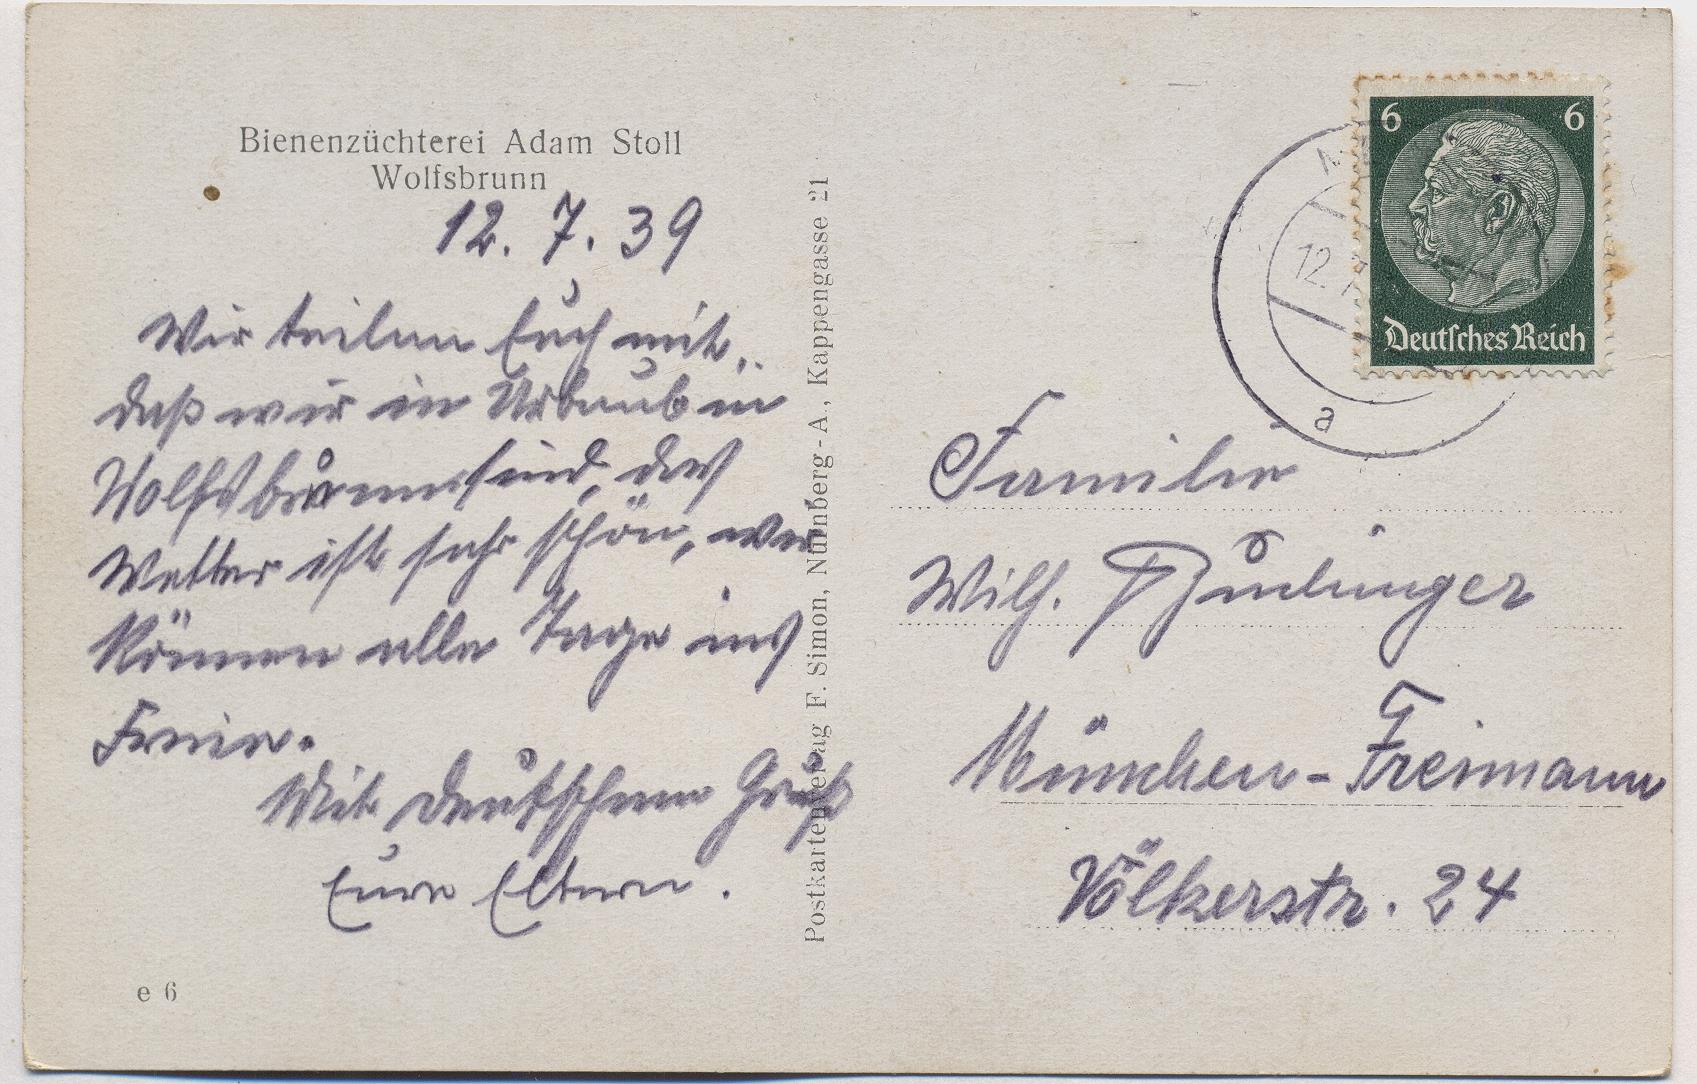 Bienenzüchterei Adam Stoll
Wolfsbrunn
12. 7. 39
Wir teilen Euch mit,
daß wir in Urlaub in
Wolfsbrunn sind, das
Wetter ist sehr schön, wir
können alle Tage ins
Freie.
Mit deutschem Gruß
Eure Eltern.
e 6
Postkartenverlag F. Simon, Nürnberg-A., Kappengasse 21
6 6
Deutsches Reich
12. 7
a
Familie
Wilh.
München-Freimann
Völkerstr. 24